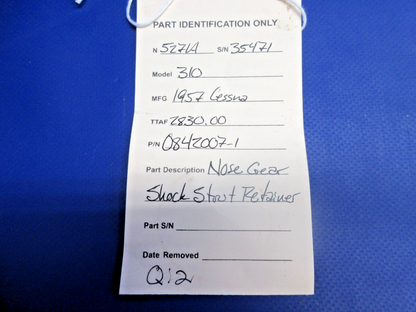 PART IDENTIFICATION ONLY
N 5271A S/N 35471
Model 310
MFG 1957 Cessna
TTAF 2830.00
P/N 0842007-1
Part Description Nose Gear
Shock Strut Retainer
Part S/N
Date Removed
Q12